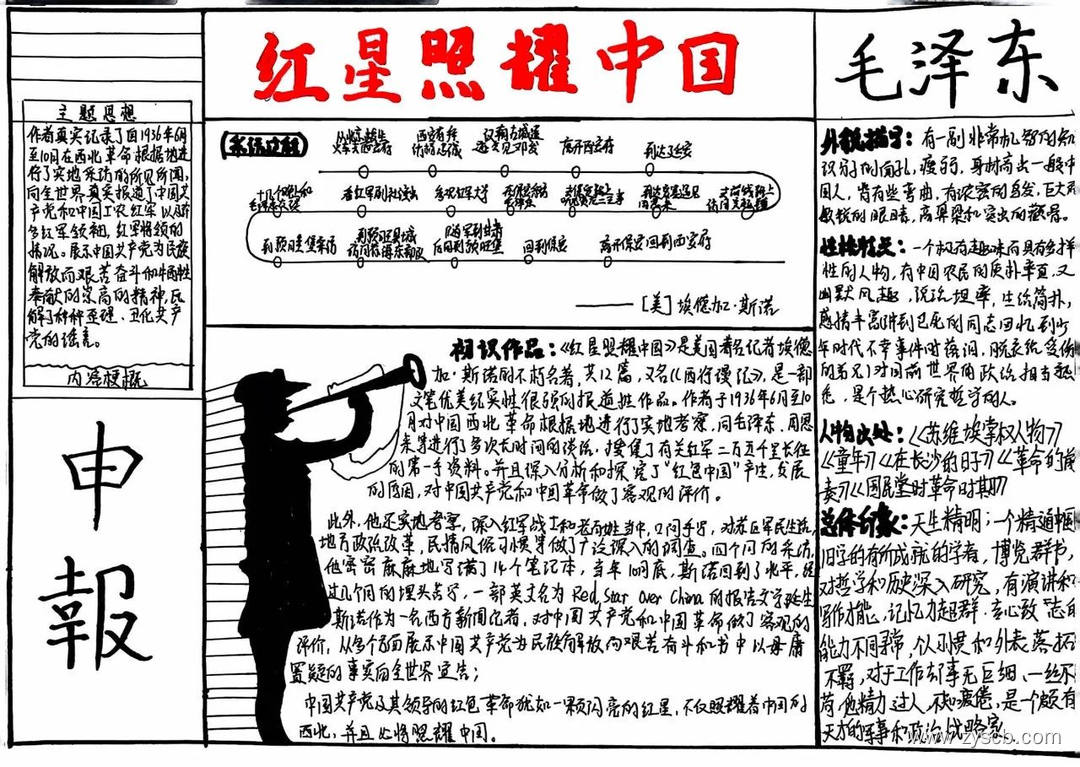 红星照耀中国
主题思想
作者真实记录了自1936年6月
至10月在西北革命根据地进
行了实地采访的所见所闻,
向全世界真实报道了中国共
产党和中国工农红军以及许
多红军领袖,红军将领的
情况。展示中国共产党为民族
解放而艰苦奋斗和牺牲
奉献的崇高的精神,瓦
解了种种歪曲、丑化共产
党的谣言。
内容梗概
申
報
采访过程
离开西安府
到达延安
回到保安
离开保安回到西安府
——[美]埃德加·斯诺
初识作品:《红星照耀中国》是美国著名记者埃德
加·斯诺的不朽名著,共12篇,又名《西行漫记》,是一部
文笔优美纪实性很强的报道性作品。作者于1936年6月至10
月对中国西北革命根据地进行了实地考察,同毛泽东、周恩
来等进行了多次长时间的谈话,搜集了有关红军二万五千里长征
的第一手资料。并且深入分析和探究了"红色中国"产生,发展
的原因,对中国共产党和中国革命做了客观的评价。
此外,他还实地考察,深入红军战士和老百姓当中,口问手写,对苏区军民生活
地方政治改革,民情风俗习惯等做了广泛深入的调查。四个月的采访,
他密密麻麻地写满了14个笔记本,当年10月底,斯诺回到了北平,经
过几个月的埋头苦写,一部英文名为Red Star Over China的报告文学诞生
斯诺作为一名西方新闻记者,对中国共产党和中国革命做了客观的
评价,从多个方面展示中国共产党为民族解放而艰苦奋斗和书中以毋庸
置疑的事实向全世界宣告;
中国共产党及其领导的红色革命犹如一颗闪亮的红星,不仅照耀着中国的
西北,并且必将照耀中国。
毛泽东
外貌描写:有一副非常机智的知
识分子的面孔,瘦弱,身材高出一般中
国人,背有些弯曲,有浓密的头发,巨大而
敏锐的眼睛,高鼻梁和突出的颧骨。
性格特点:一个极有趣味而具有多样
性的人物,有中国农民的质朴率真,又
幽默风趣,说话坦率,生活简朴,
感情丰富讲到已死的同志回忆到少
年时代不幸事件时落泪,脱衣给受伤
的弟兄)对目前世界的政治相当熟
悉,是个热心研究哲学的人。
人物出处:《苏维埃掌权人物》
《童年》《在长沙的日子》《革命的前
奏》《国民党时革命时期》
总体印象:天生精明;一个精通中国
旧学的有所成就的学者,博览群书,
对哲学和历史深入研究,有演讲和
写作才能,记忆力超群,专心致志的
能力不同寻常,个人习惯和外表落拓
不羁,对于工作却事无巨细、一丝不
苟,他精力过人,不知疲倦,是一个颇有
天才的军事和政治战略家
www.zyscb.com